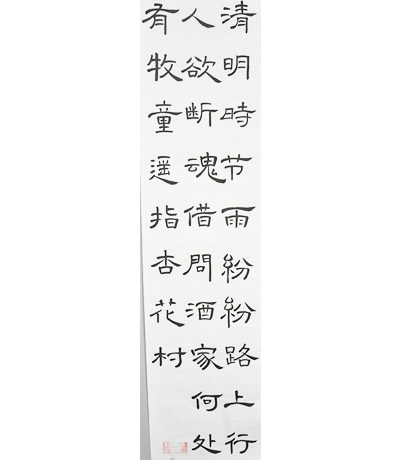 清明時节雨紛紛路上行
人欲断魂借問酒家何处
有牧童遥指杏花村